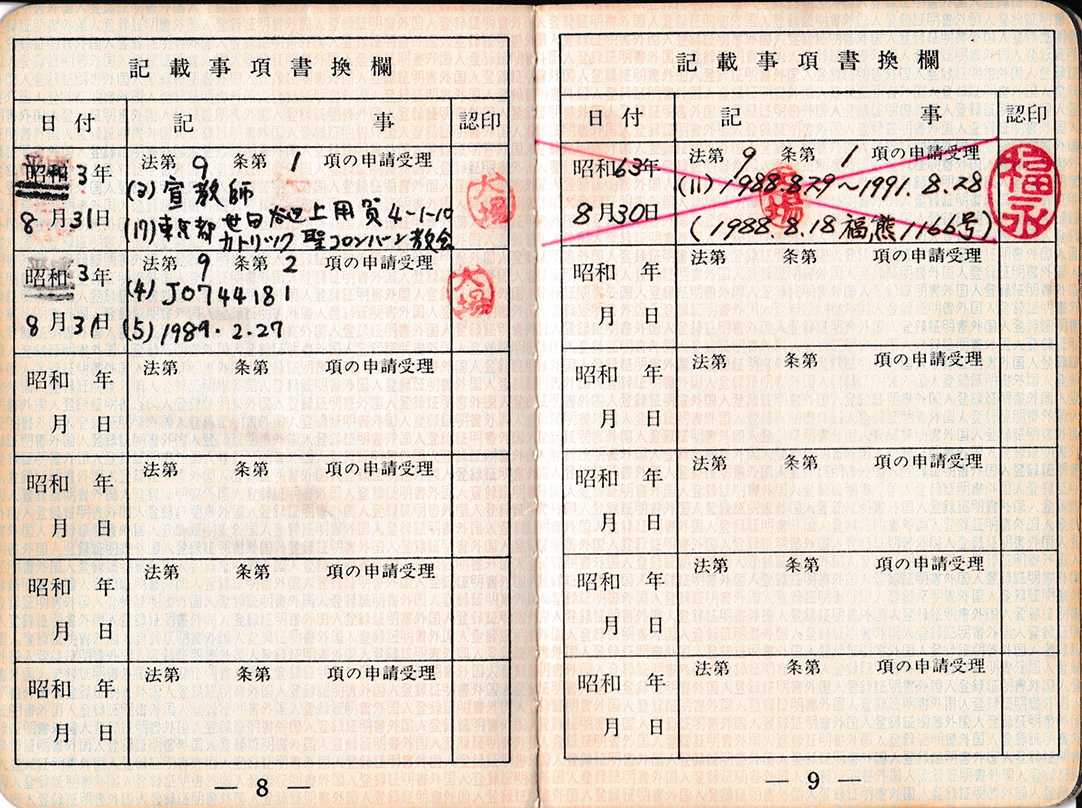 記載事項書換欄
日付 記事 認印
昭和 平成 3年 法第 9 条第 1 項の申請受理
(3) 宣教師
8月31日 (17) 東京都 世田谷区上用賀4-1-10
カトリック 聖コロンバン教会
大場
昭和 3年 法第 9 条第 2 項の申請受理
(4) J0744181
8月31日 (5) 1989.2.27
大場
昭和 年 法第 条第 項の申請受理
月 日
昭和 年 法第 条第 項の申請受理
月 日
昭和 年 法第 条第 項の申請受理
月 日
昭和 年 法第 条第 項の申請受理
月 日
— 8 —
記載事項書換欄
日付 記事 認印
昭和63年 法第 9 条第 1 項の申請受理
(11) 1988.8.29～1991.8.28
8月30日 (1988.8.18 福熊1166号)
福永
昭和 年 法第 条第 項の申請受理
月 日
昭和 年 法第 条第 項の申請受理
月 日
昭和 年 法第 条第 項の申請受理
月 日
昭和 年 法第 条第 項の申請受理
月 日
昭和 年 法第 条第 項の申請受理
月 日
— 9 —